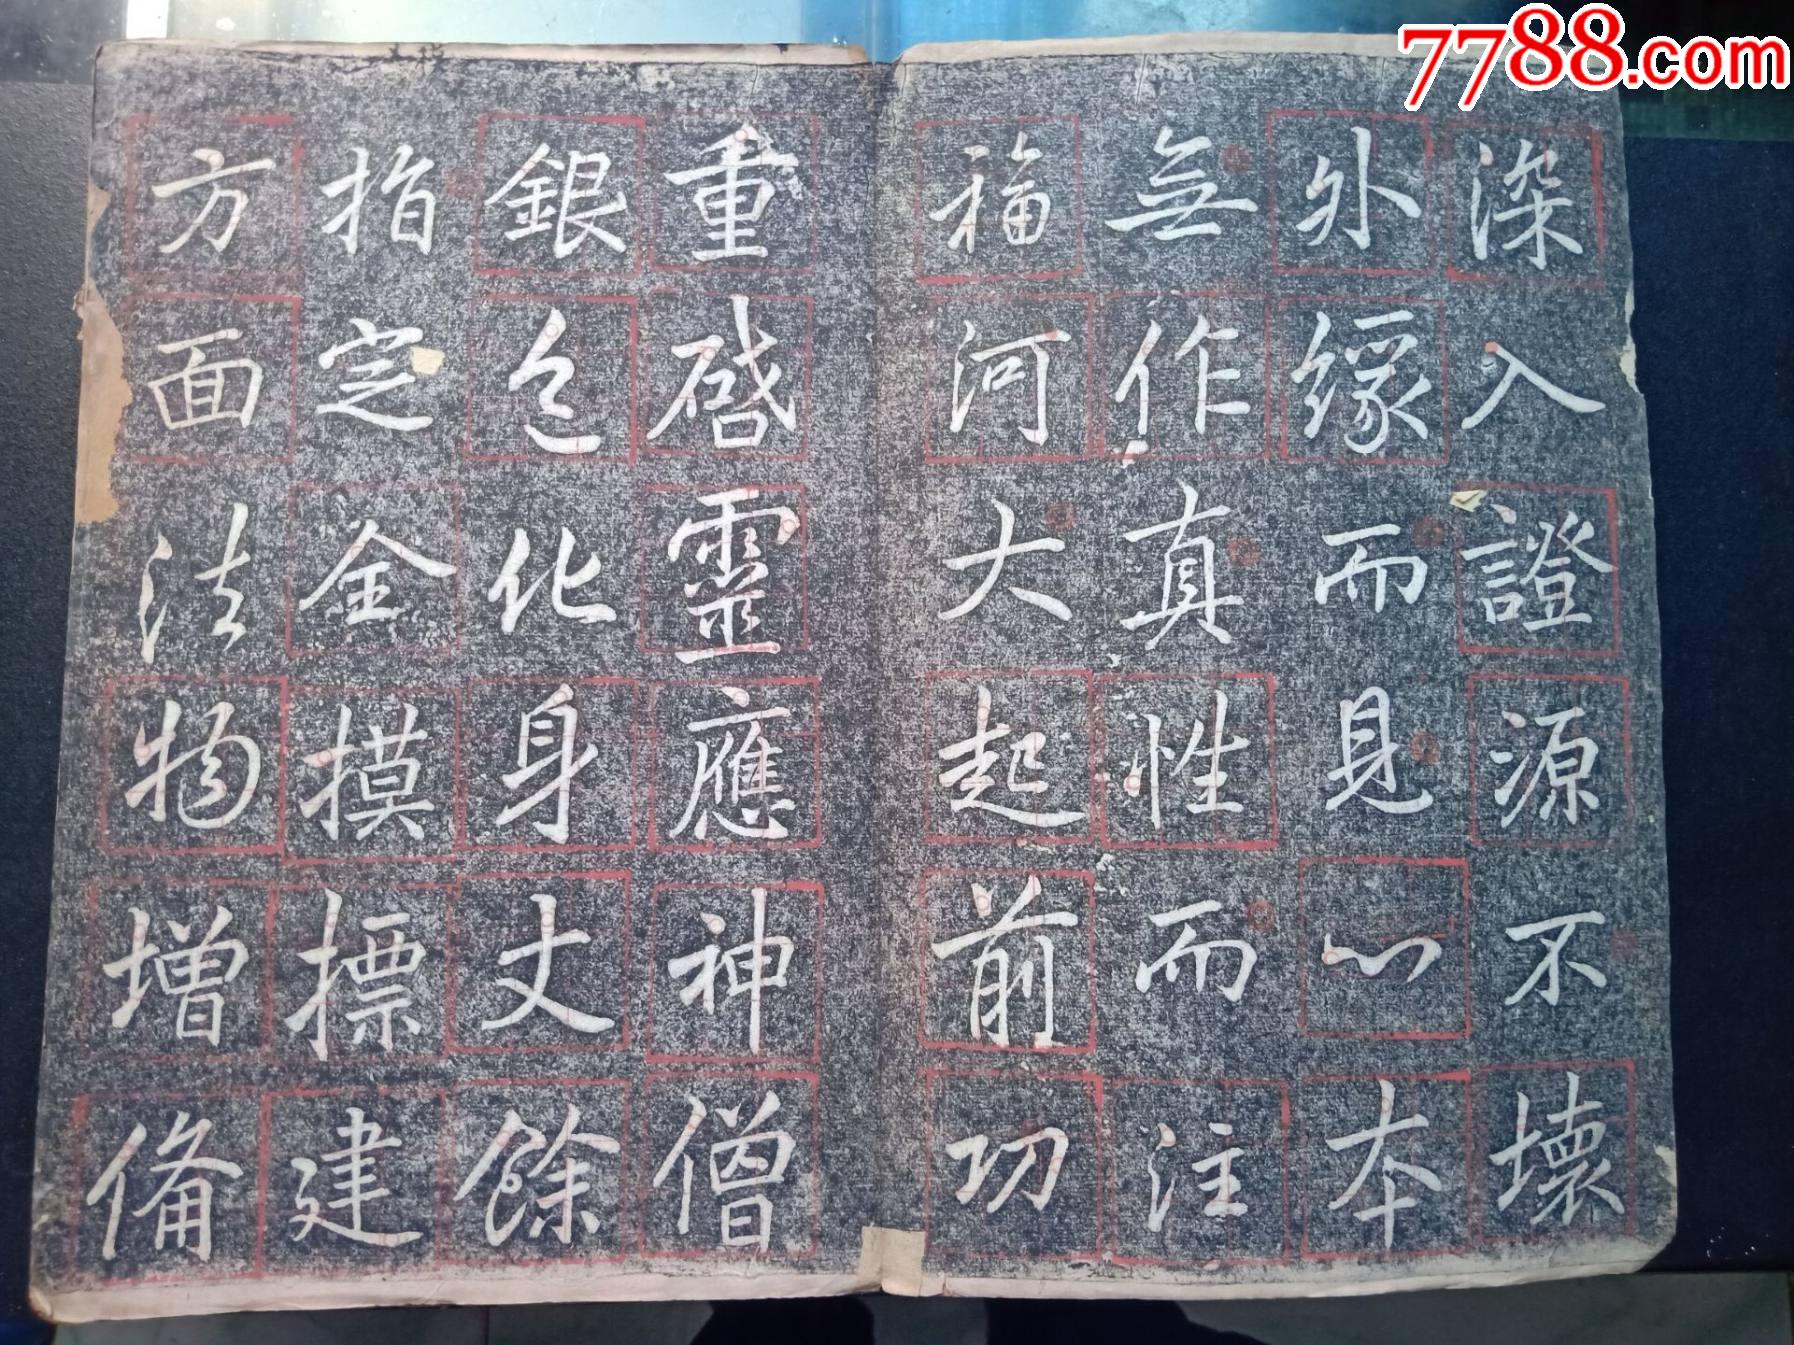 深入證源不壞
外緣而見心本
無作真性而注
福河大起前功
重啓靈應神僧
銀色化身丈餘
指定全摸標建
方面法物增備
7788.com